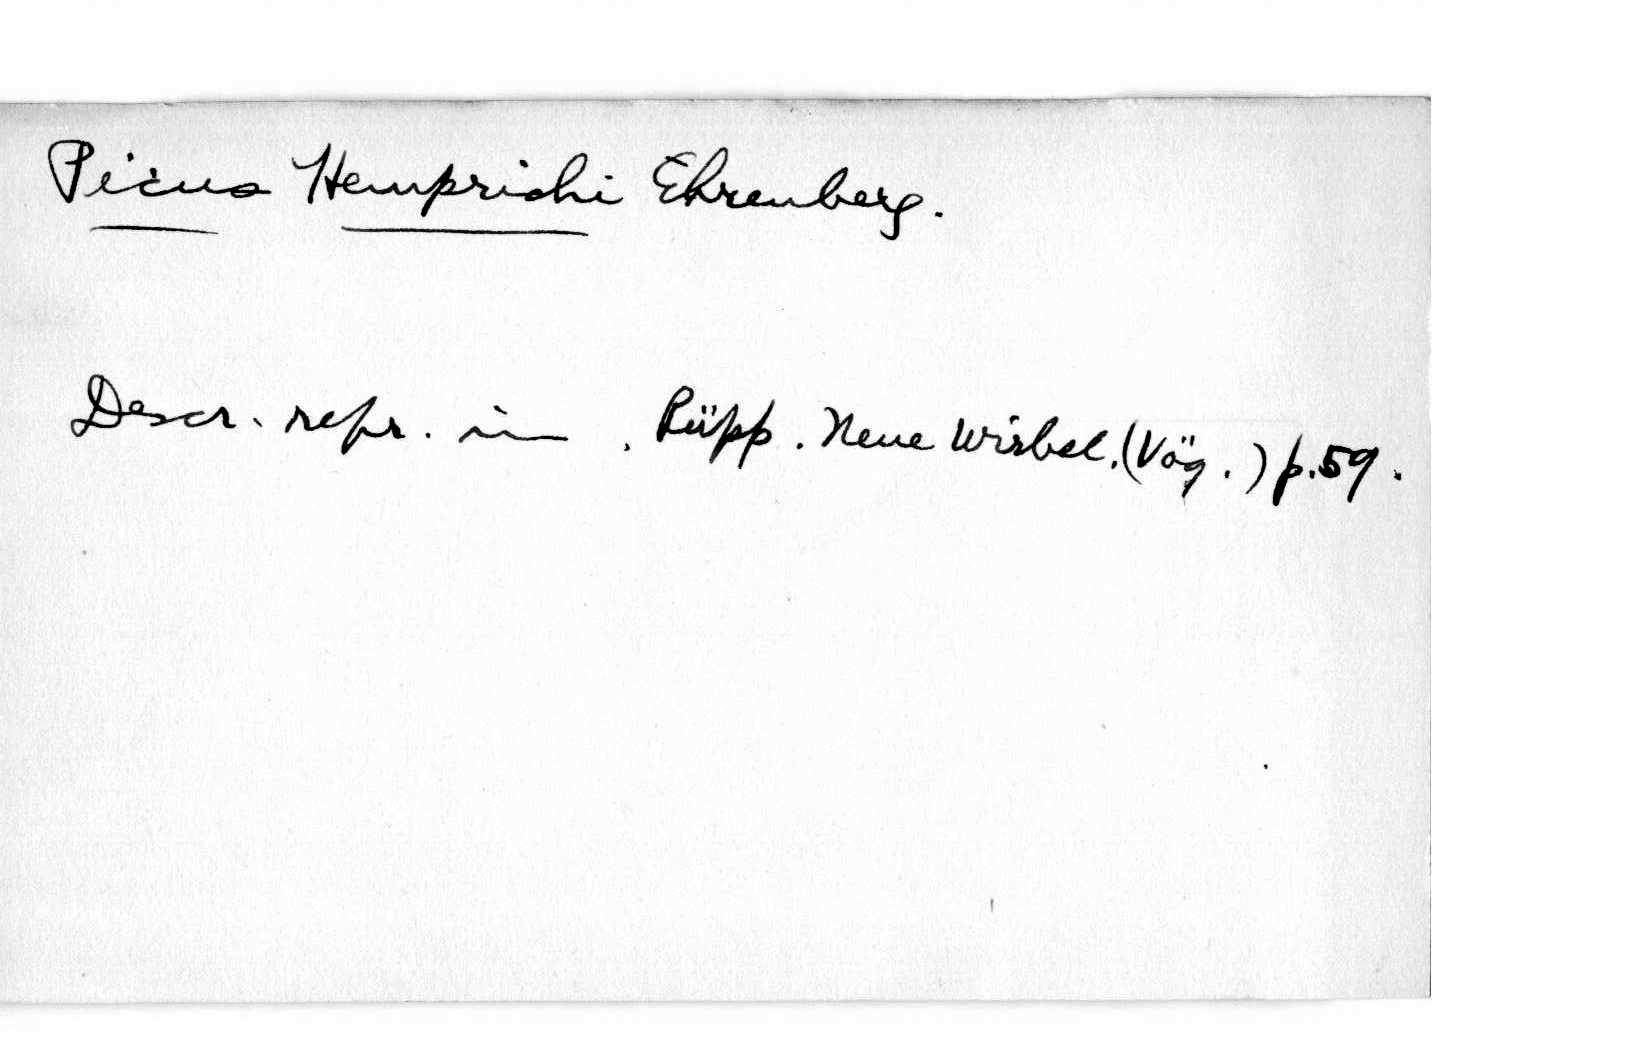 Picus Hemprichi Ehrenberg.
Descr. repr. in . Rüpp. Neue Wirbel. (Vög.) p.59.